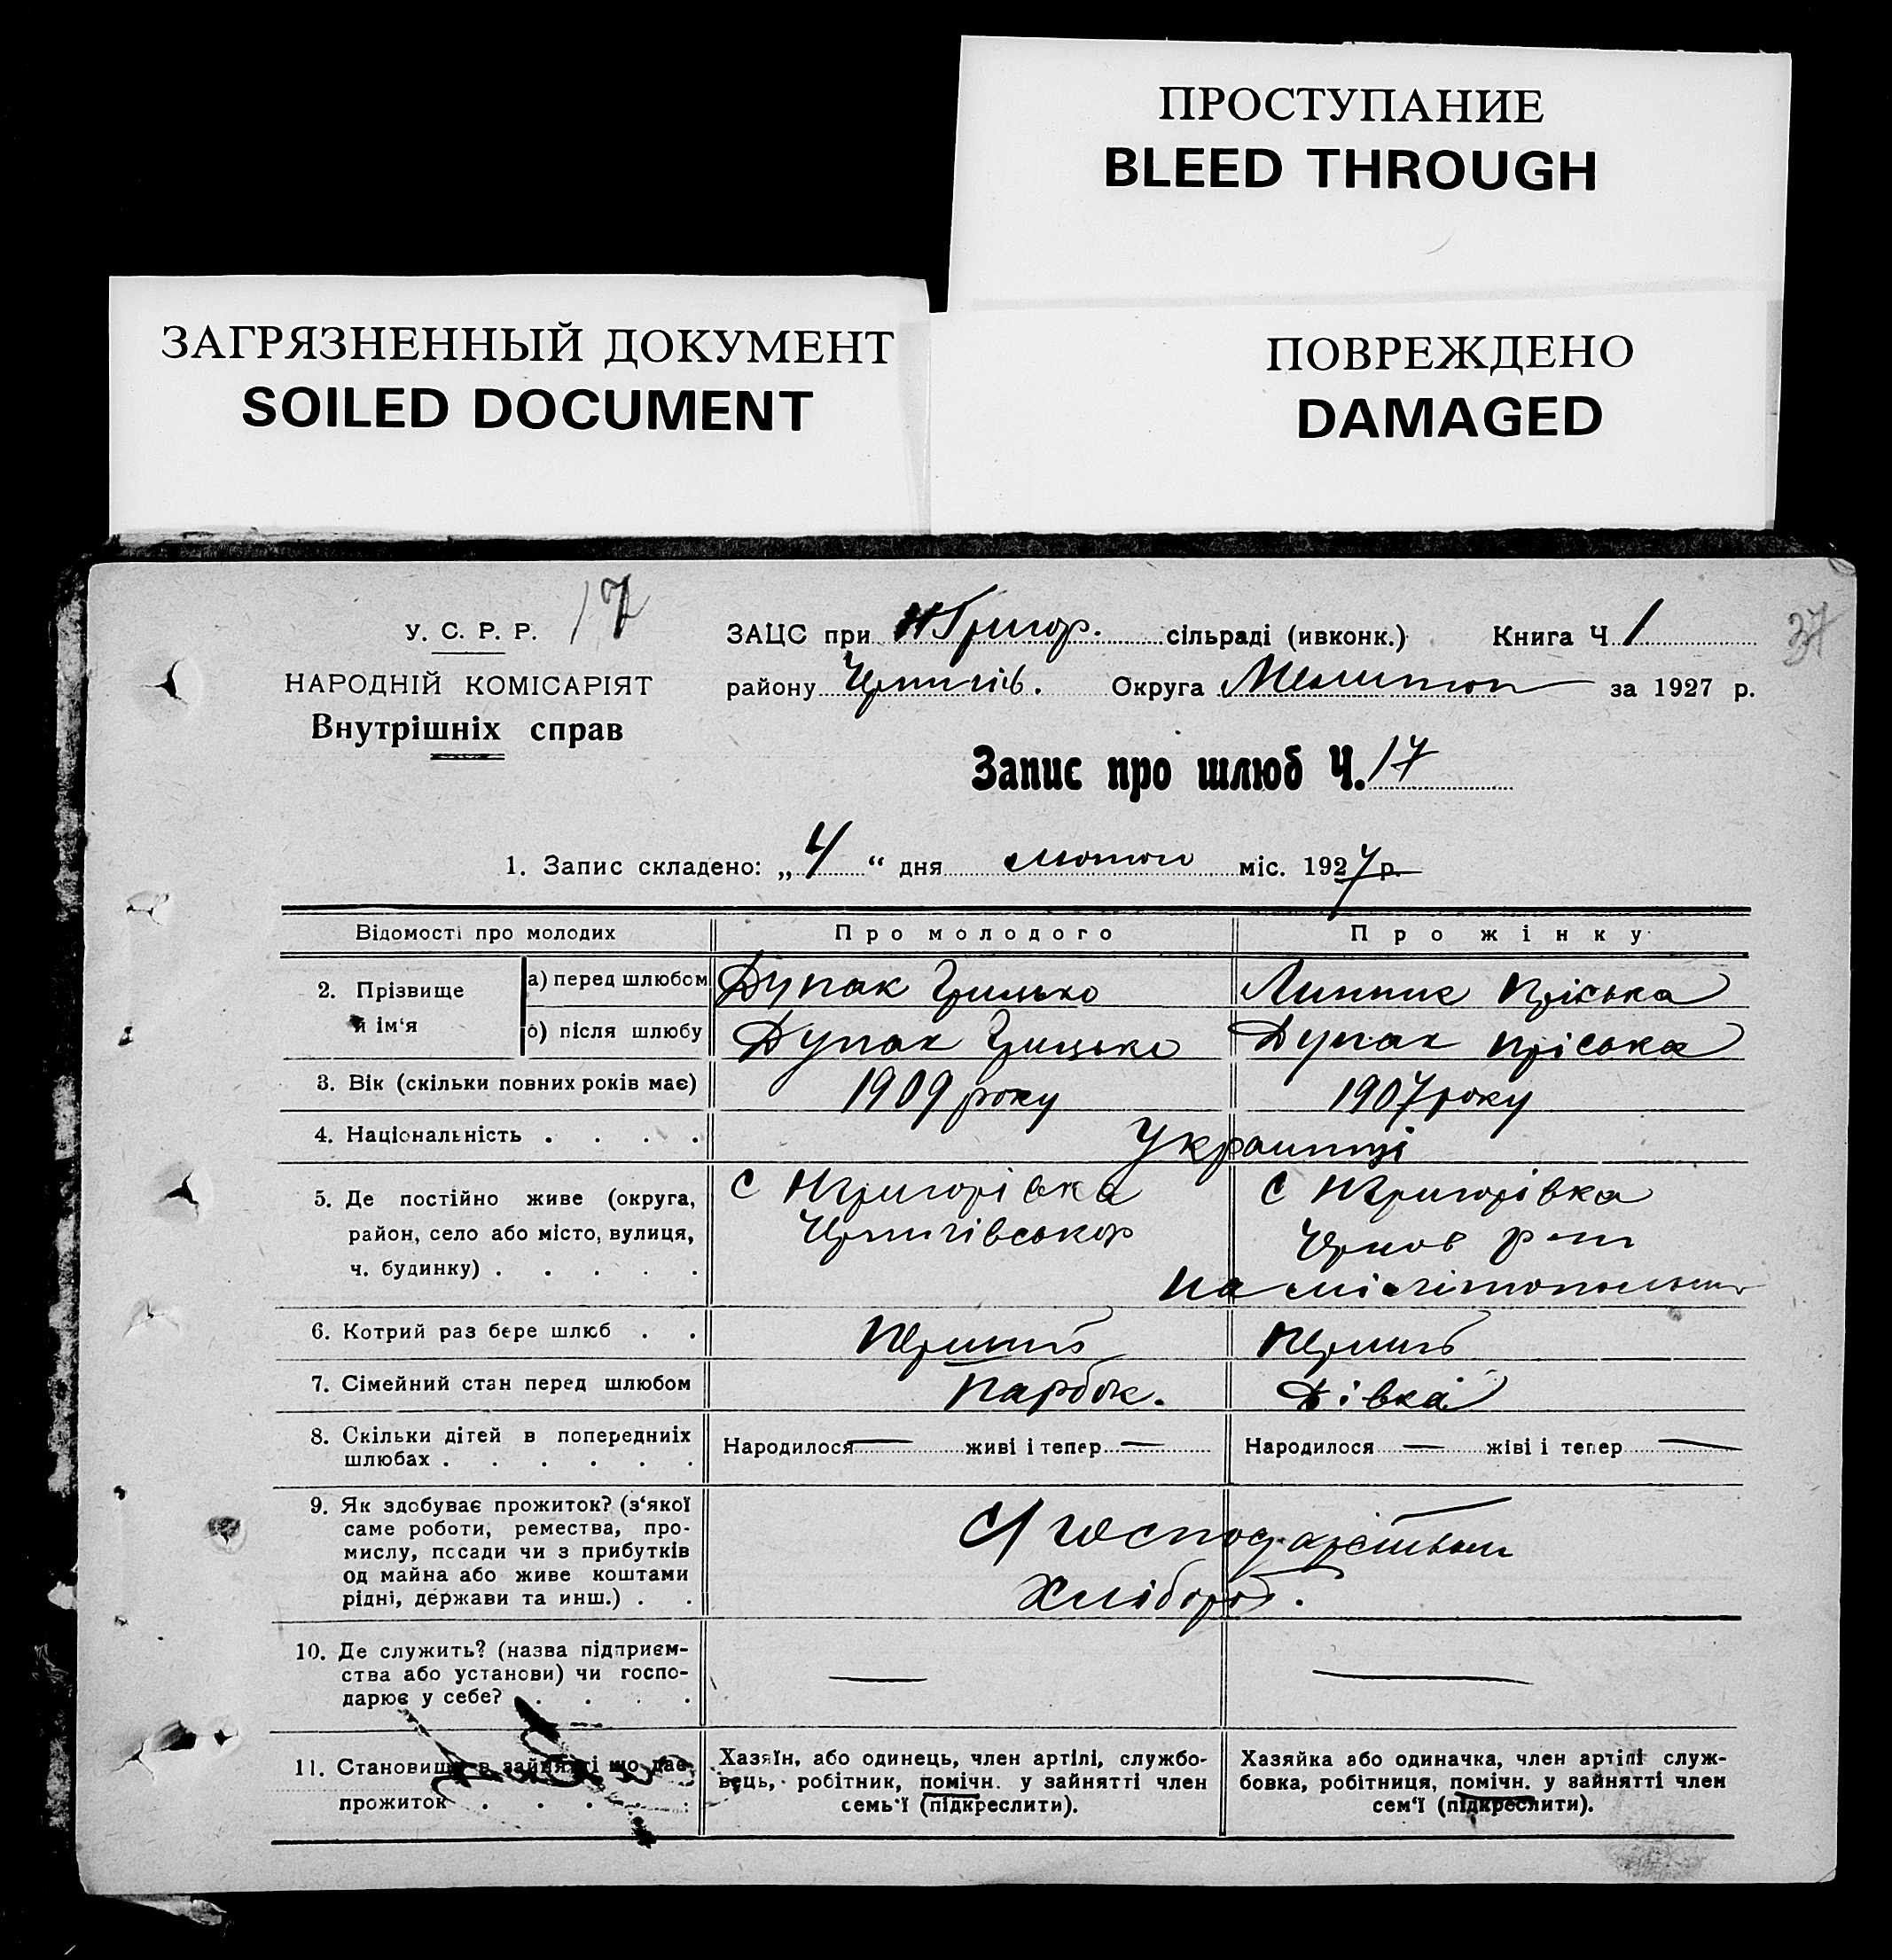 ПРОСТУПАНИЕ
BLEED THROUGH
ЗАГРЯЗНЕННЫЙ ДОКУМЕНТ
SOILED DOCUMENT
ПОВРЕЖДЕНО
DAMAGED
У. С. Р. Р. 17
НАРОДНІЙ КОМІСАРІЯТ
Внутрішніх справ
ЗАЦС при НГригор. сільраді (ивконк.) Книга Ч 1
37
району Чернигів. Округа Мелитоп за 1927 р.
Запис про шлюб Ч. 17
1. Запис складено: „4“ дня лютого міс. 1927 р.
Відомості про молодих Про молодого Про жінку
2. Прізвище й ім‘я
а) перед шлюбом Дупак Грицько Линник Пріська
б) після шлюбу Дупак Грицько Дупак Пріська
3. Вік (скільки повних років має) 1909 року 1907 року
4. Національність . . . . Украинці
5. Де постійно живе (округа, С НГригорівка С НГригорівка
район, село або місто, вулиця, Чернигівськ Р
ч. будинку) . . . . .
на
6. Котрий раз бере шлюб . . Перший Перший
7. Сімейний стан перед шлюбом Парубок. Дівка
8. Скільки дітей в попередниіх Народилося — живі і тепер — Народилося — жіві і тепер —
шлюбах . . . . . .
9. Як здобуває прожиток? (з‘якої
саме роботи, ремества, про-
мислу, посади чи з прибутків С/господарством
од майна або живе коштами
рідні, держави та инш.) . . Хлібороб.
10. Де служить? (назва підприєм-
ства або установи) чи госпо- — —
дарює у себе? . . . .
11. Становище в зайнятті що дає Хазяїн, або одинець, член артілі, службо- Хазяйка або одиначка, член артілі служ-
прожиток . . . . . вець, робітник, помічн. у зайнятті член бовка, робітниця, помічн. у зайнятті член
семь‘ї (підкреслити). сем‘ї (підкреслити).